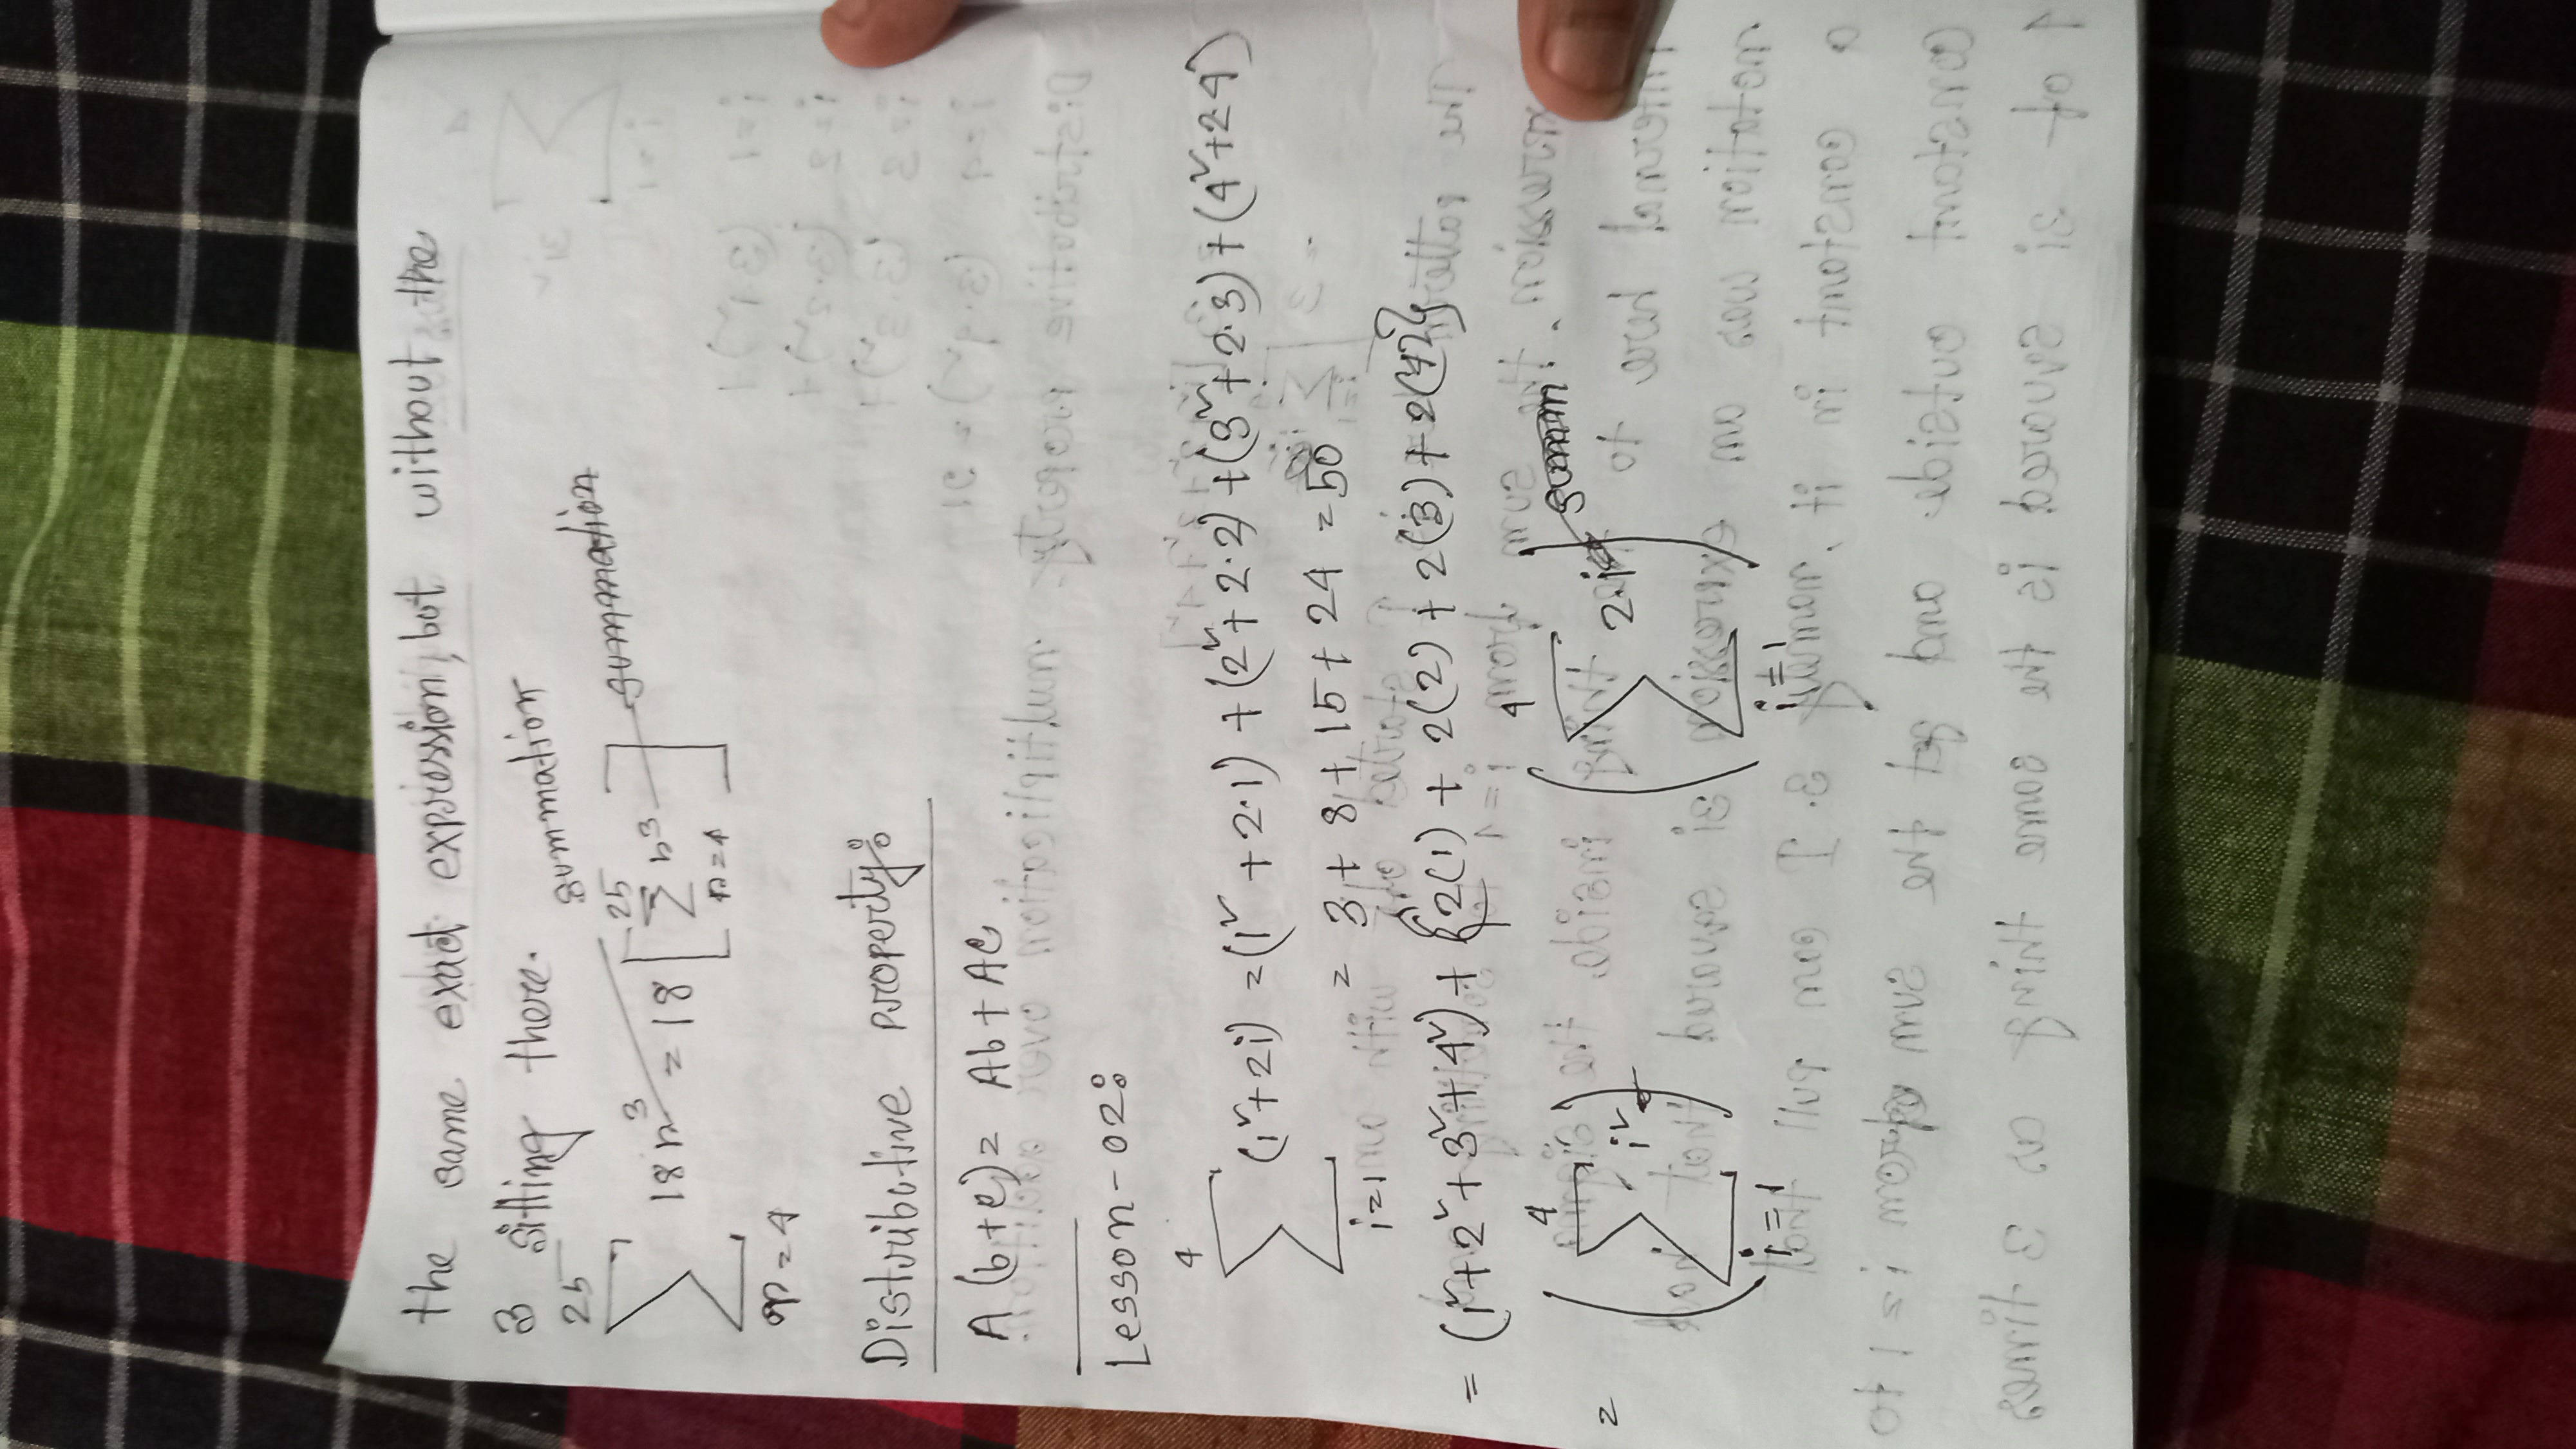 the same exact expression, but without the
3 sitting there.
summation
25
∑ 18n³ = 18 [ 25 ∑ n=4 n³ ] summation
n=4
Distributive property:
A (b+c) = Ab + AC
Lesson-02:
4
∑ (i²+2i) = (1² + 2·1) + (2²+2·2) + (3²+2·3) + (4²+2·4)
i=1
= 3 + 8 + 15 + 24 = 50
= (1²+2²+3²+4²) + {2(1) + 2(2) + 2(3) + 2(4)}
= ( 4 ∑ i=1 i² ) ( 4 ∑ i=1 2·i )